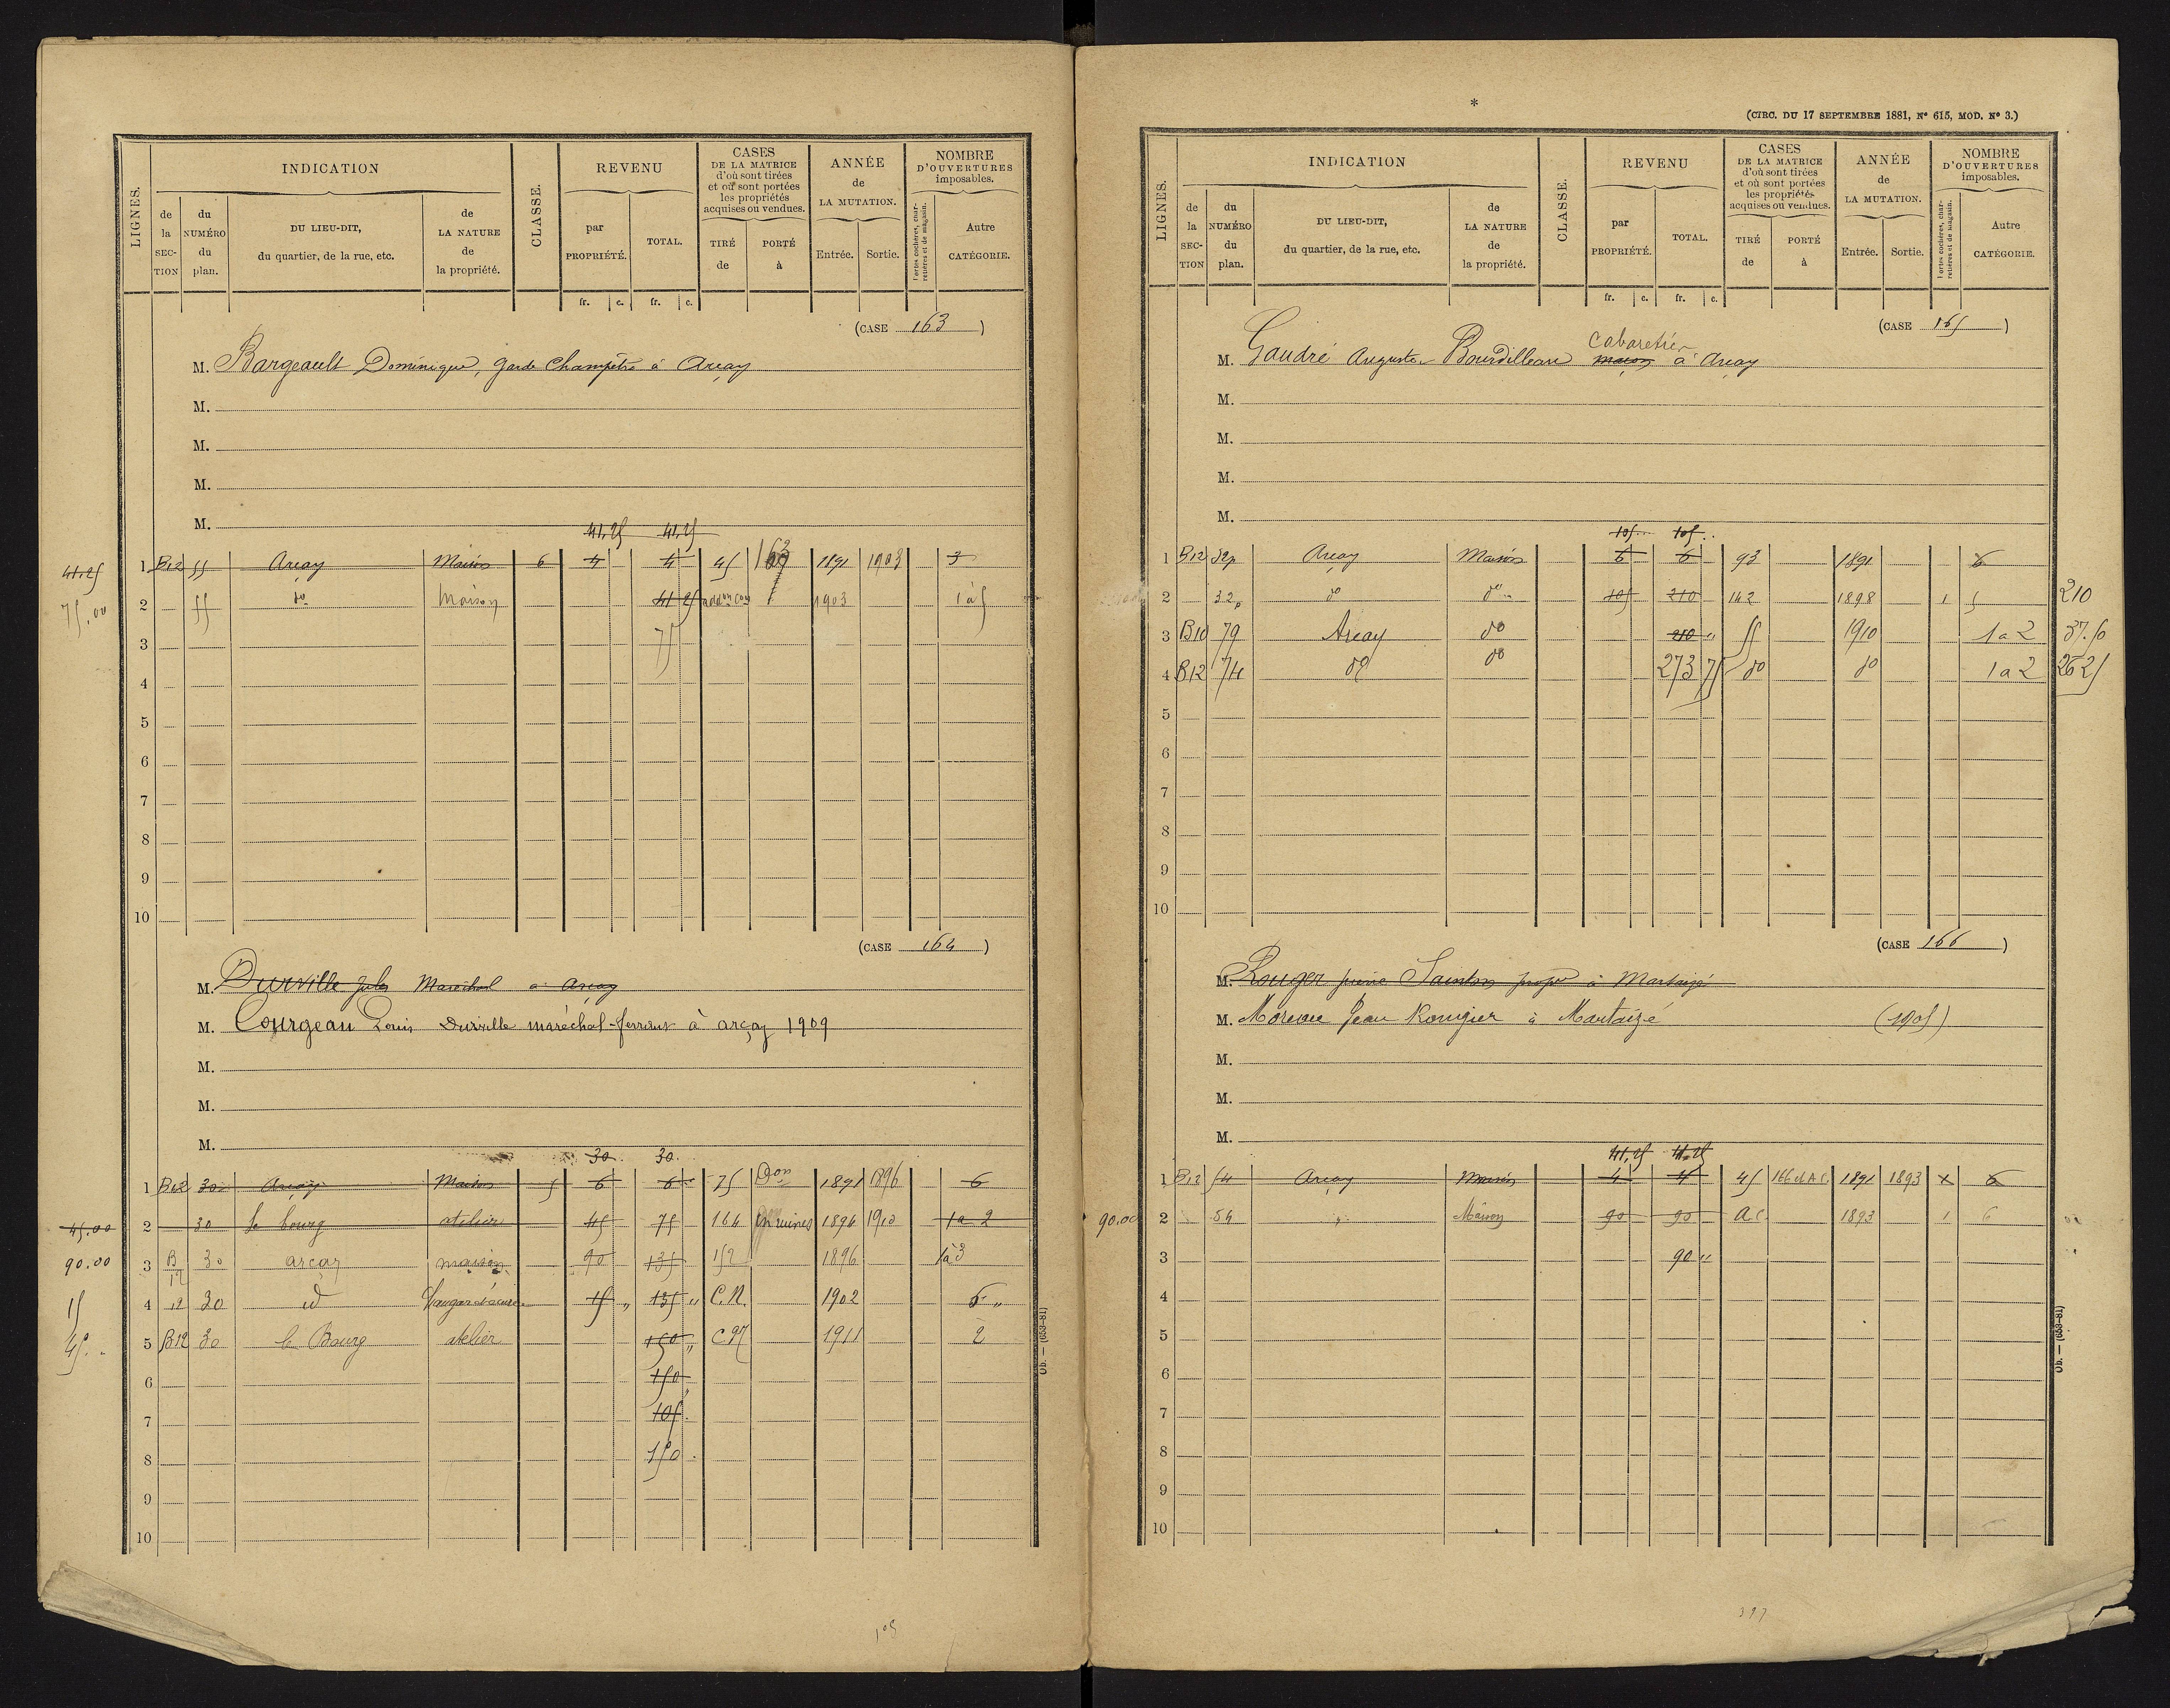 LIGNES.
INDICATION
CLASSE.
REVENU
CASES
DE LA MATRICE
d'où sont tirées
et où sont portées
les propriétés
acquises ou vendues.
ANNÉE
de
LA MUTATION.
NOMBRE
D'OUVERTURES
imposables.
de la SECTION
du NUMÉRO du plan.
DU LIEU-DIT,
du quartier, de la rue, etc.
de LA NATURE de la propriété.
par PROPRIÉTÉ.
TOTAL.
TIRÉ de
PORTÉ à
Entrée.
Sortie.
Portes cochères, charretières et de magasin.
Autre CATÉGORIE.
fr. c. fr. c.
(CASE 163)
M. Bargeault Dominique, garde Champêtre à Arçay
M.
M.
M.
M.
41,25 41,25
41.25 1 B12 55 Arçay Maison 6 4 4 45 163 1891 1903 3
75.00 2 55 do Maison 41 25 addon con 1903 1 à 5
3 75
4
5
6
7
8
9
10
(CASE 164)
M. Durville Jules Maréchal à Arçay
M. Courgeau Louis Durville maréchal-ferrant à arçay 1909
M.
M.
M.
30 30
1 B12 30 Arçay Maison 5 6 6 75 Don 1891 1896 6
45.00 2 30 le bourg atelier 45 75 164 En ruines 1894 1910 1 a 2
90.00 3 B 12 30 arçay maison 90 135 152 1896 1 à 3
15 4 12 30 id 15 " 135 " C.N. 1902 "
45. 5 B12 30 le Bourg atelier 150 " C.N 1911 2
6 150
7 105
8 150
9
10
Ob. — (653-81)
105
*
(CIRC. DU 17 SEPTEMBRE 1881, N° 615, MOD. N° 3.)
LIGNES.
INDICATION
CLASSE.
REVENU
CASES
DE LA MATRICE
d'où sont tirées
et où sont portées
les propriétés
acquises ou vendues.
ANNÉE
de
LA MUTATION.
NOMBRE
D'OUVERTURES
imposables.
de la SECTION
du NUMÉRO du plan.
DU LIEU-DIT,
du quartier, de la rue, etc.
de LA NATURE de la propriété.
par PROPRIÉTÉ.
TOTAL.
TIRÉ de
PORTÉ à
Entrée.
Sortie.
Portes cochères, charretières et de magasin.
Autre CATÉGORIE.
fr. c. fr. c.
(CASE 165)
cabaretier
M. Gaudré Auguste Bourdilleau maçon à Arçay
M.
M.
M.
M.
105 105
1 B12 32p Arçay Maison 6 6 93 1891 6
2 32p do do 105 210 142 1898 1 5 210
3 B10 79 Arçay do 210 " 55 1910 1 a 2 37.50
4 B12 74 do do 273 75 do do 1 a 2 26 25
5
6
7
8
9
10
(CASE 166)
M. Rouger Sainton propre à Martaizé
M. Moreau Jean Rougier à Martaizé (1905)
M.
M.
M.
41,25 41,25
1 B12 54 Arçay Maison 4 4 45 166 et A C 1891 1893 x 6
90.00 2 54 " Maison 90 90 A C 1893 1 6
3 90 "
4
5
6
7
8
9
10
Ob. — (653-81)
397